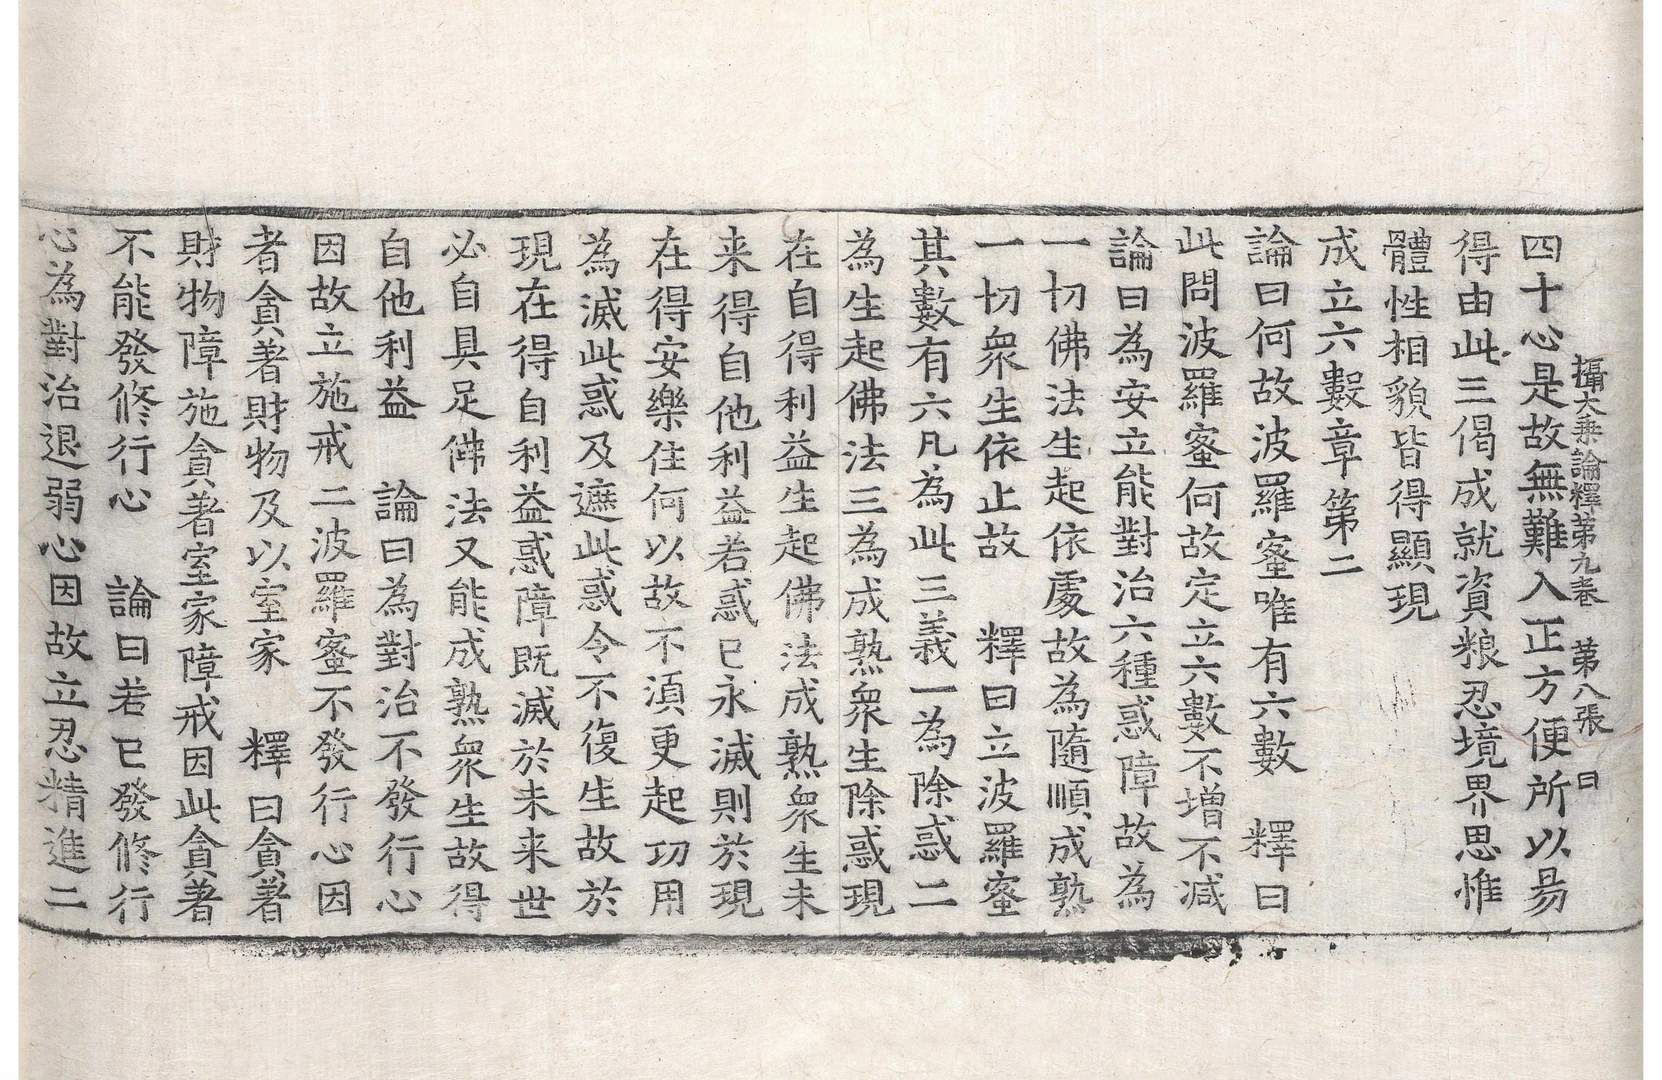 攝大乗論釋第九卷 第八張 曰
四十心是故無難入正方便所以易
得由此三偈成就資粮忍境界思惟
體性相貌皆得顯現
成立六數章第二
論曰何故波羅蜜唯有六數 釋曰
此問波羅蜜何故定立六數不增不减
論曰為安立能對治六種惑障故為
一切佛法生起依處故為隨順成熟
一切衆生依止故 釋曰立波羅蜜
其數有六凡為此三義一為除惑二
為生起佛法三為成熟衆生除惑現
在自得利益生起佛法成熟衆生未
来得自他利益若惑已永滅則於現
在得安樂住何以故不湏更起功用
為滅此惑及遮此惑令不復生故於
現在得自利益惑障既滅於未来世
必自具足佛法又能成熟衆生故得
自他利益 論曰為對治不發行心
因故立施戒二波羅蜜不發行心因
者貪著財物及以室家 釋曰貪著
財物障施貪著室家障戒因此貪著
不能發修行心 論曰若已發修行
心為對治退弱心因故立忍精進二